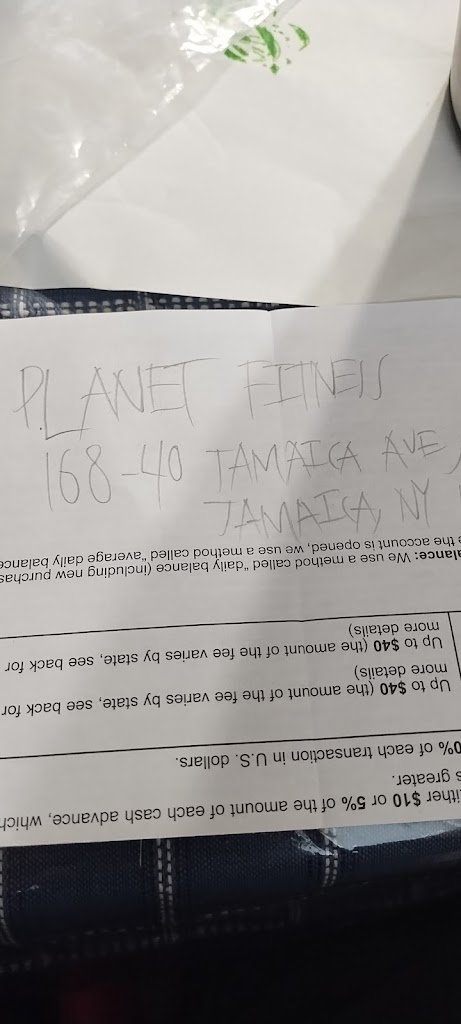 PLANET FITNESS
168-40 JAMAICA AVE,
JAMAICA, NY
either $10 or 5% of the amount of each cash advance, which
s greater.
0% of each transaction in U.S. dollars.
Up to $40 (the amount of the fee varies by state, see back for
more details)
Up to $40 (the amount of the fee varies by state, see back for
more details)
alance: We use a method called "daily balance (including new purchas
e the account is opened, we use a method called "average daily balance